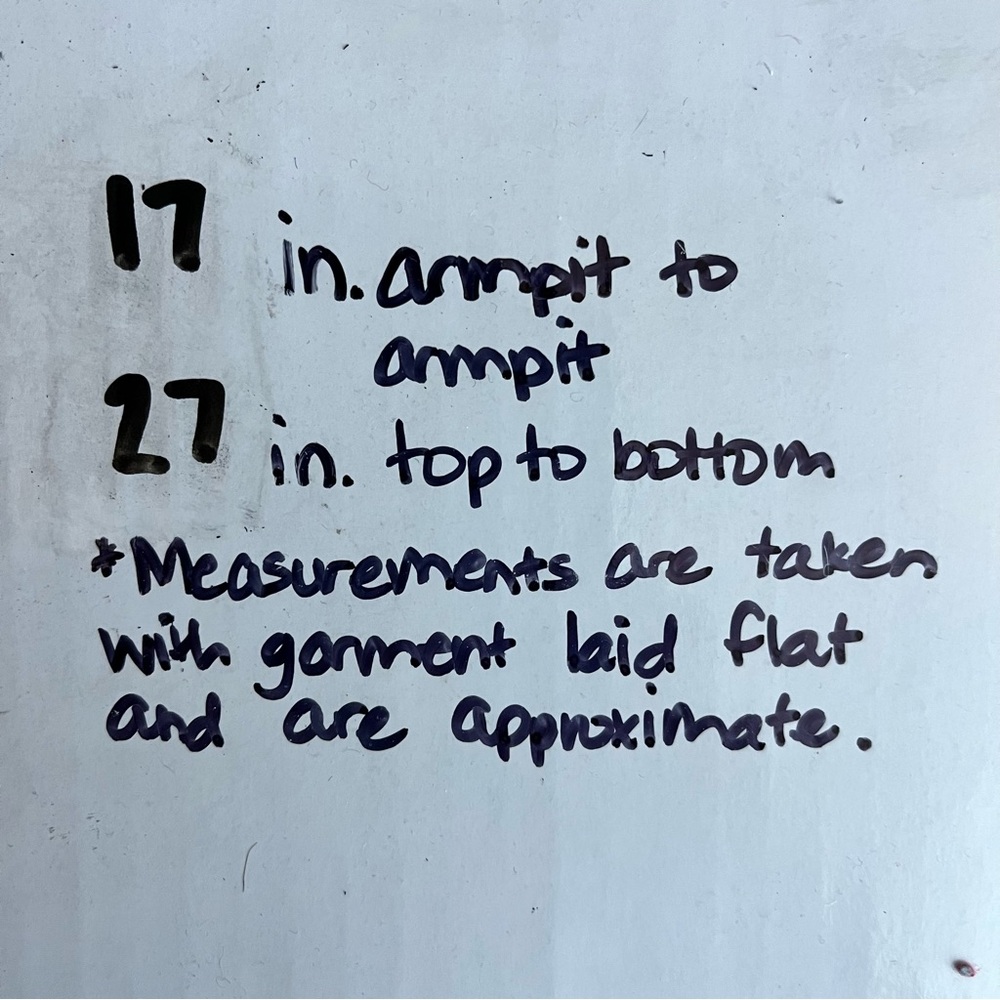 17 in. armpit to
armpit
27 in. top to bottom
*Measurements are taken
with garment laid flat
and are approximate.